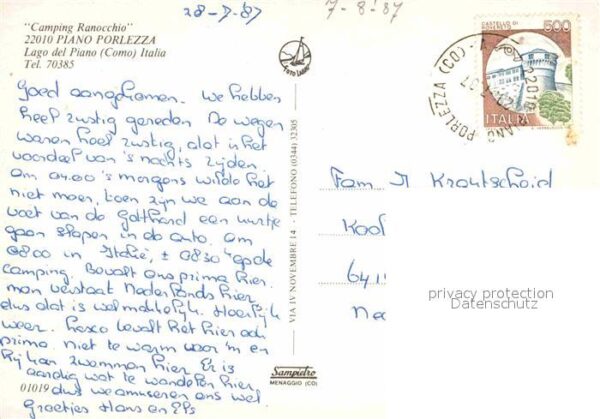 28-7-'87
7-8-'87
"Camping Ranocchio"
22010 PIANO PORLEZZA
Lago del Piano (Como) Italia
Tel. 70385
FOTO LARIO
500
CASTELLO DI ROVERETO
ITALIA
PIANO PORLEZZA (CO)
Goed aangekomen. We hebben
heel rustig gereden. De wegen
waren heel rustig, dat is het
voordeel van 's nachts rijden.
Om 04.00 's morgens wilde het
niet meer, toen zijn we aan de
voet van de Gotthard een uurtje
gaan slapen in de auto. Om
0800 in Italië, ± 0830 op de
camping. Bevalt ons prima hier.
men verstaat Nederlands hier
dus dat is wel makkelijk. Heerlijk
weer. Lesco bevalt het hier ook
prima. Niet te warm voor 'm en
hij kan zwemmen hier. Er is
aardig wat te wandelen hier,
dus we amuseren ons wel
Groetjes Hans en Els
01019
VIA IV NOVEMBRE 14 - TELEFONO (0344) 32305
Sampietro
MENAGGIO (CO)
Fam. Krautscheid
6411
privacy protection
Datenschutz